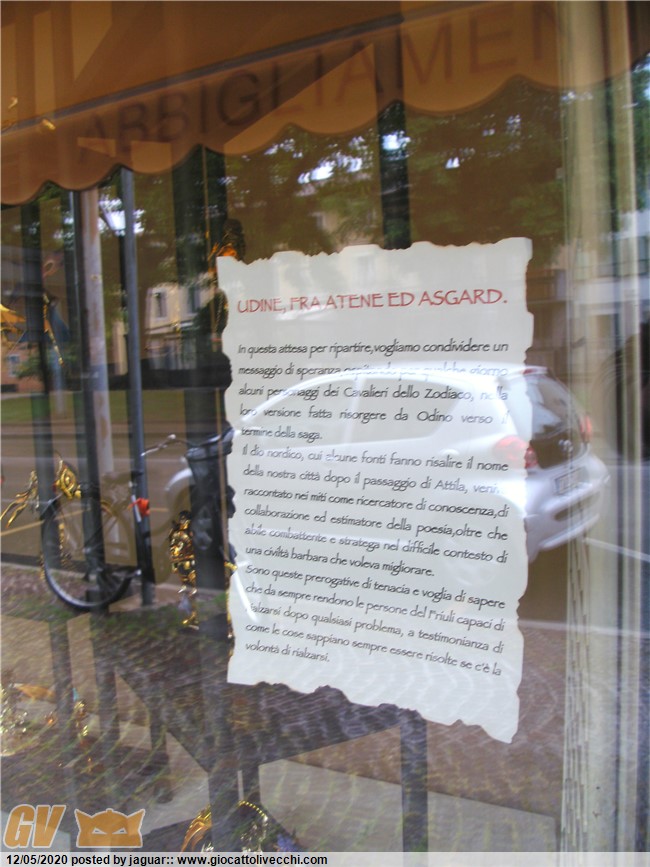 ABBIGLIAMEN
UDINE, FRA ATENE ED ASGARD.
In questa attesa per ripartire,vogliamo condividere un
messaggio di speranza per qualche giorno
alcuni personaggi dei Cavalieri dello Zodiaco, nella
loro versione fatta risorgere da Odino verso il
termine della saga.
Il dio nordico, cui alcune fonti fanno risalire il nome
della nostra città dopo il passaggio di Attila, veniva
raccontato nei miti come ricercatore di conoscenza,di
collaborazione ed estimatore della poesia,oltre che
abile combattente e stratega nel difficile contesto di
una civiltà barbara che voleva migliorare.
Sono queste prerogative di tenacia e voglia di sapere
che da sempre rendono le persone del Friuli capaci di
rialzarsi dopo qualsiasi problema, a testimonianza di
come le cose sappiano sempre essere risolte se c'è la
volontà di rialzarsi.
GV
12/05/2020 posted by jaguar:: www.giocattolivecchi.com